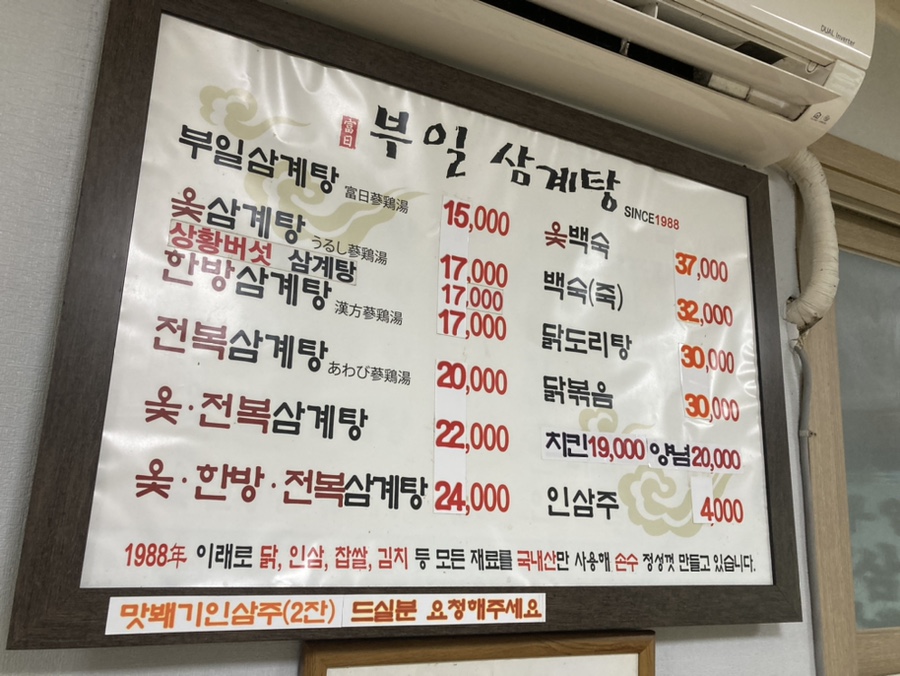 富日 부일 삼계탕
SINCE1988
부일삼계탕 富日蔘鶏湯 15,000
옻삼계탕 うるし蔘鶏湯 17,000
상황버섯 삼계탕 17,000
한방삼계탕 漢方蔘鶏湯 17,000
전복삼계탕 あわび蔘鶏湯 20,000
옻·전복삼계탕 22,000
옻·한방·전복삼계탕 24,000
옻백숙 37,000
백숙(죽) 32,000
닭도리탕 30,000
닭볶음 30,000
치킨19,000 양념20,000
인삼주 4,000
1988年 이래로 닭, 인삼, 찹쌀, 김치 등 모든 재료를 국내산만 사용해 손수 정성껏 만들고 있습니다.
맛뵈기인삼주(2잔) 드실분 요청해주세요
DUAL Inverter